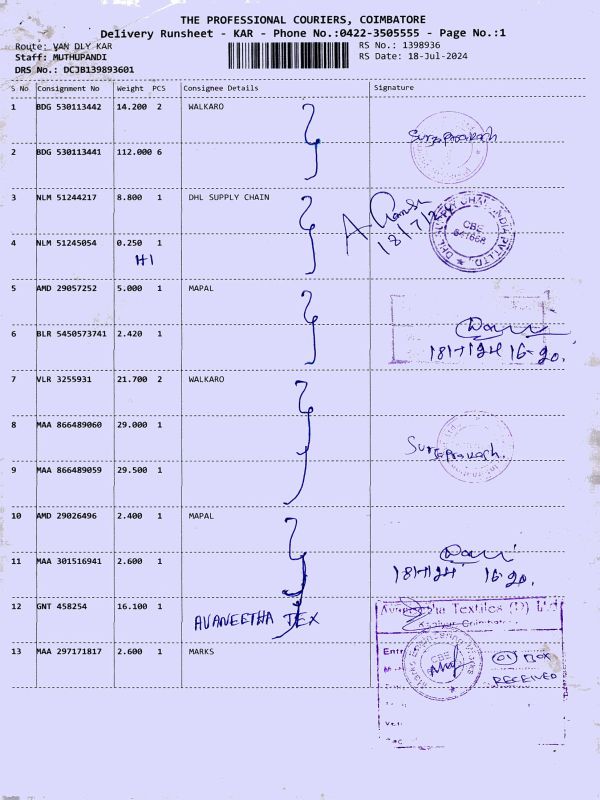 THE PROFESSIONAL COURIERS, COIMBATORE
Delivery Runsheet - KAR - Phone No.:0422-3505555 - Page No.:1
Route: VAN DLY KAR
RS No.: 1398936
Staff: MUTHUPANDI
RS Date: 18-Jul-2024
DRS No.: DCJB139893601
S No Consignment No Weight PCS Consignee Details Signature
1 BDG 530113442 14.200 2 WALKARO
Surya Prakash
2 BDG 530113441 112.000 6
3 NLM 51244217 8.800 1 DHL SUPPLY CHAIN
18/7/24
CBE
641668
4 NLM 51245054 0.250 1
H1
5 AMD 29057252 5.000 1 MAPAL
6 BLR 5450573741 2.420 1
18/7/24 16-20.
7 VLR 3255931 21.700 2 WALKARO
8 MAA 866489060 29.000 1
Surya Prakash.
9 MAA 866489059 29.500 1
10 AMD 29026496 2.400 1 MAPAL
11 MAA 301516941 2.600 1
18/7/24 16-20.
12 GNT 458254 16.100 1 AVANEETHA TEX
Avaneetha Textiles (P) Ltd
13 MAA 297171817 2.600 1 MARKS
CBE
01 BOX
RECEIVED